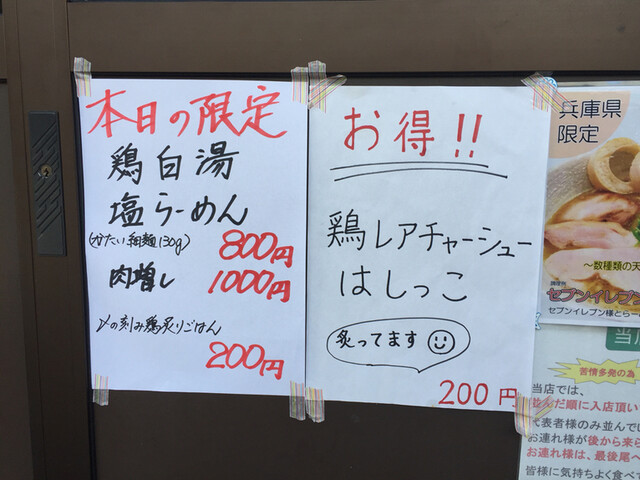 本日の限定
鶏白湯
塩らーめん
(かたい細麺130g)
800円
肉増し 1000円
〆の刻み鶏炙りごはん
200円
お得!!
鶏レアチャーシュー
はしっこ
炙ってます
200円
兵庫県
限定
～数種類の天
セブンイレブン
セブンイレブン様とらー
当店
苦情多発の為
当店では、
並んだ順に入店頂い
代表者様のみ並んでい
お連れ様が後から来ら
お連れ様は、最後尾へ
皆様に気持ちよく食べて